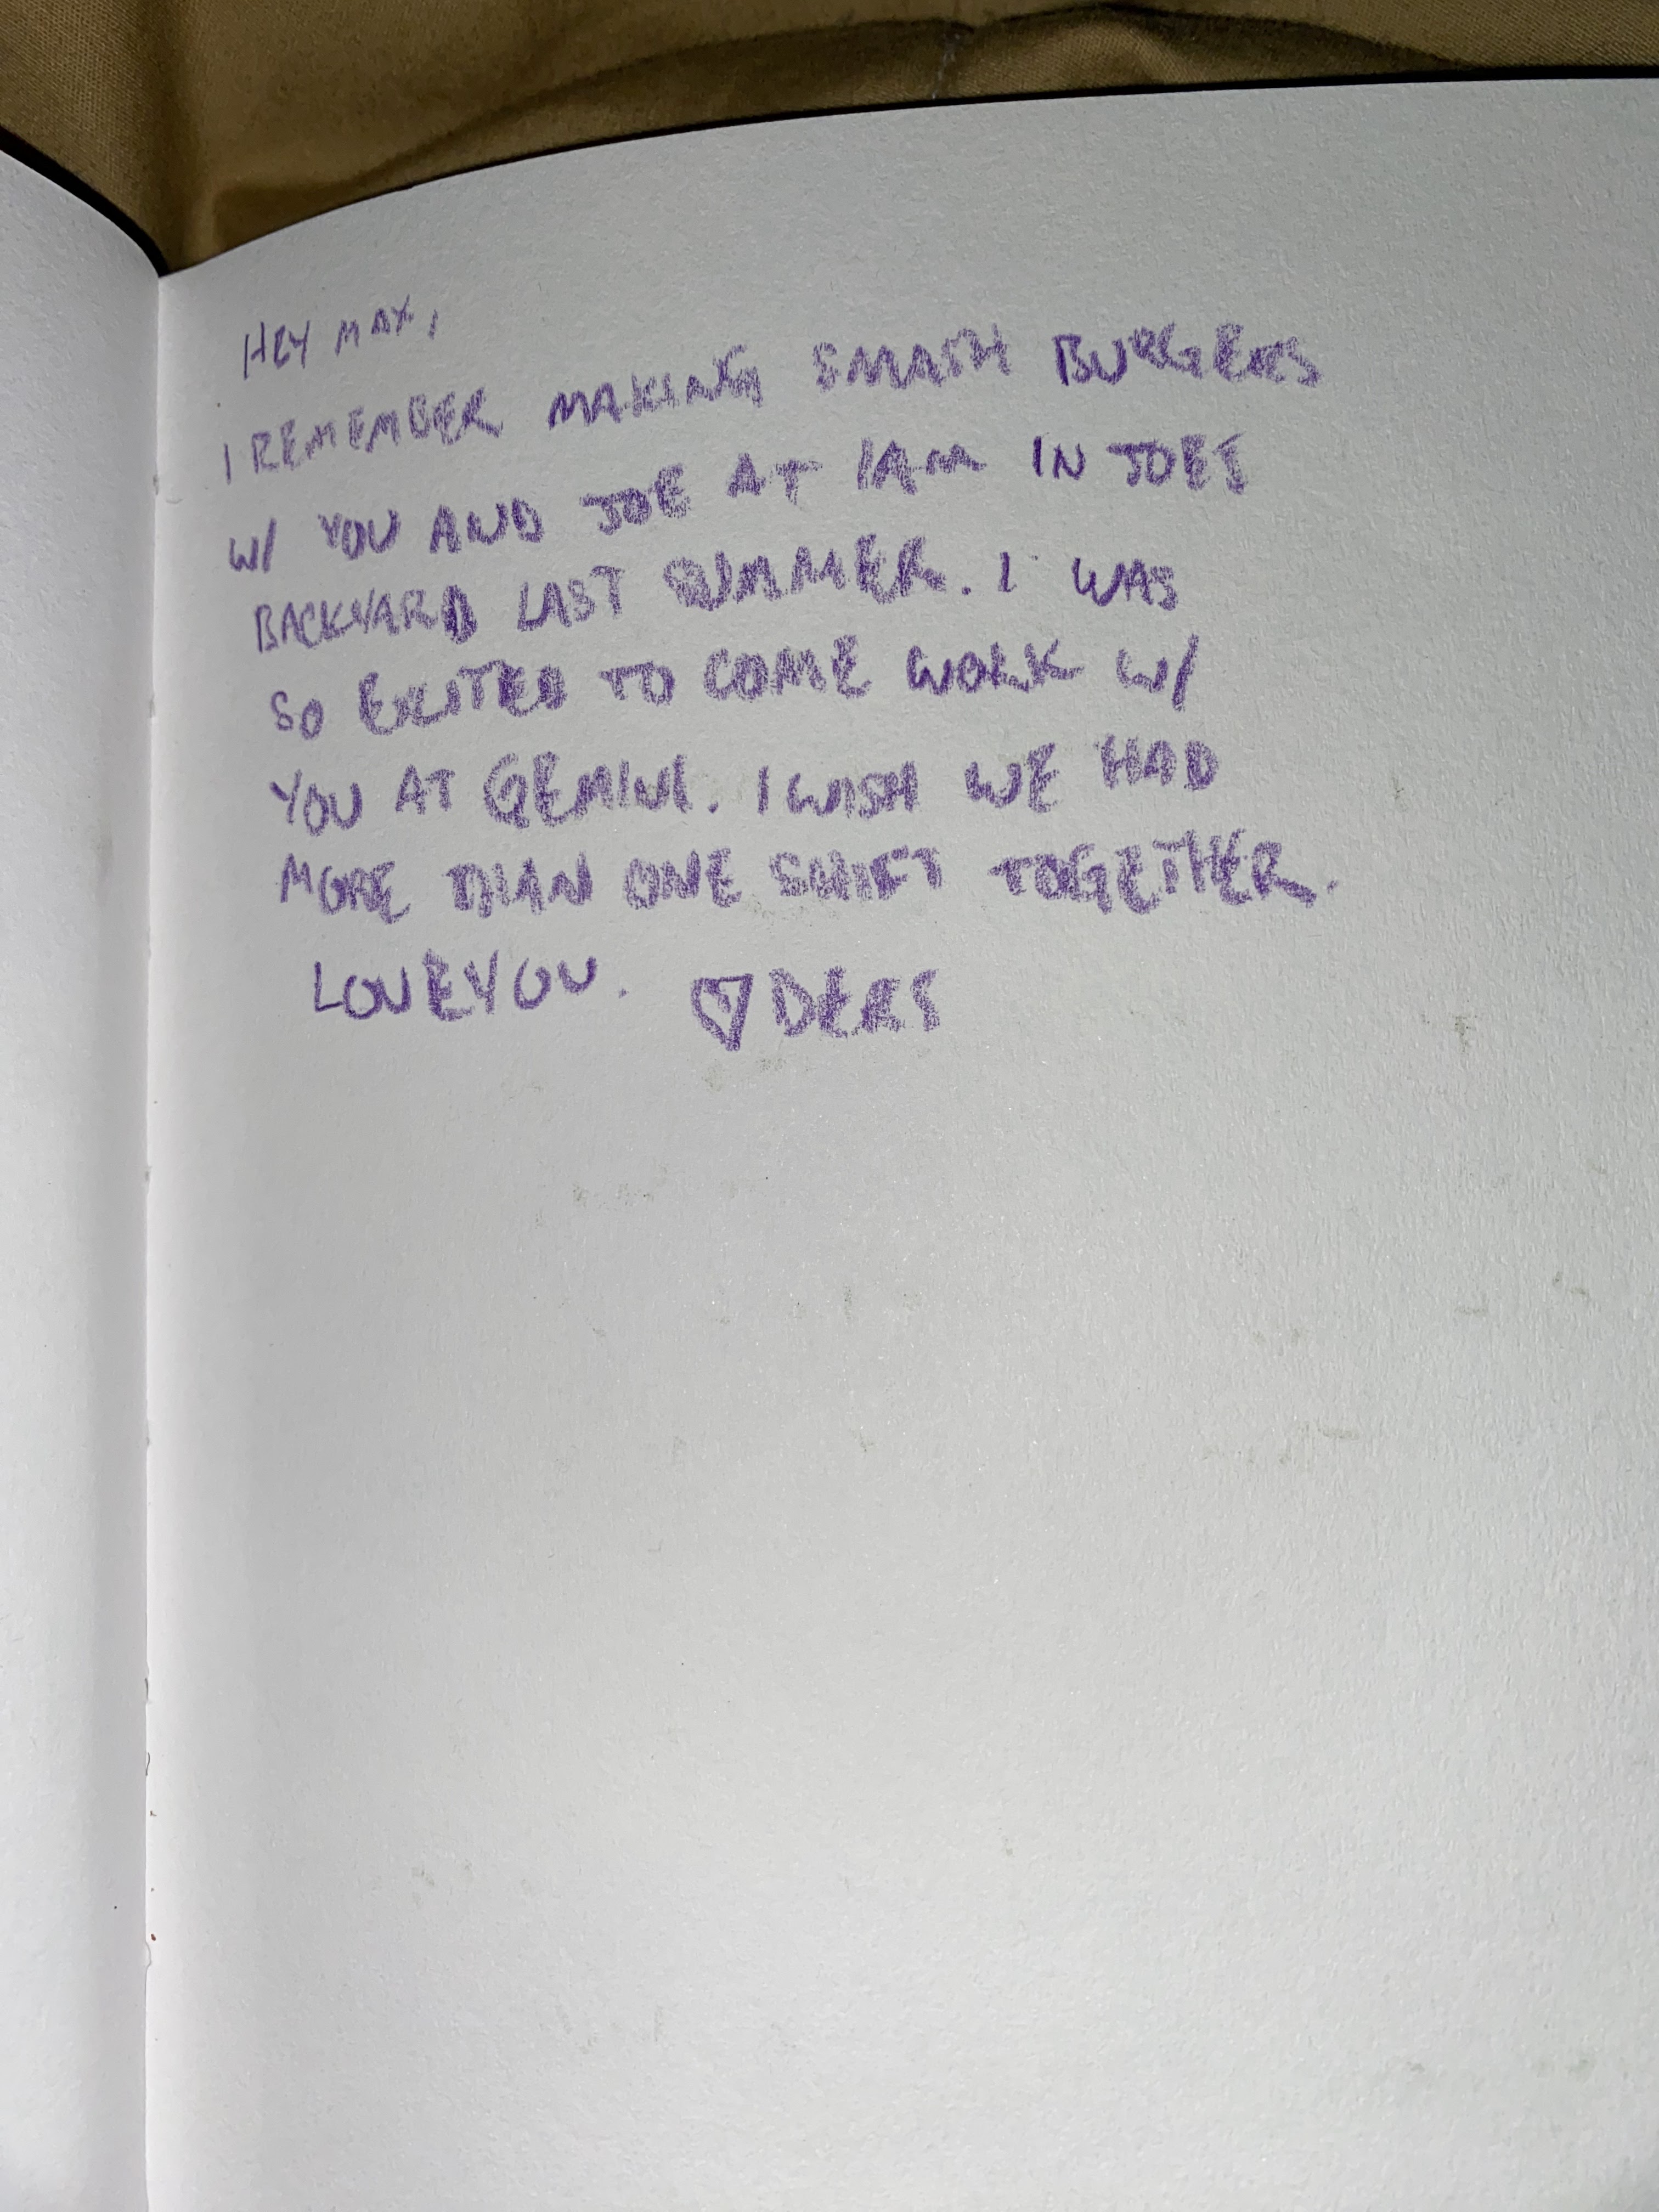 HEY MAX,
I REMEMBER MAKING SMASH BURGERS
W/ YOU AND JOE AT 1AM IN JOES
BACKYARD LAST SUMMER. I WAS
SO EXCITED TO COME WORK W/
YOU AT GEMINI. I WISH WE HAD
MORE THAN ONE SHIFT TOGETHER.
LOVE YOU. ♡ DERS